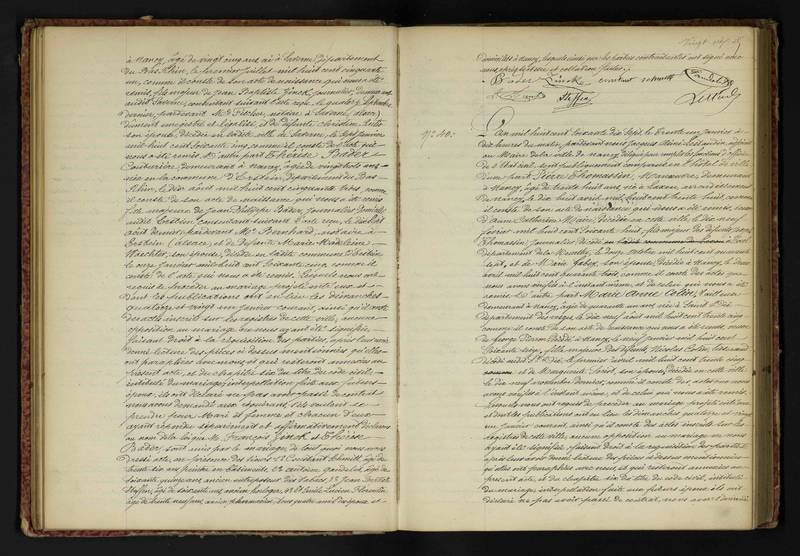 à Nancy, âgé de vingt cinq ans né à Saverne, Département
du Bas-Rhin, le premier juillet mil huit cent cinquante
un, comme il conste de son acte de naissance qui nous a été
remis, fils majeur de Jean Baptiste Zinck, journalier, demeurant
audit Saverne, consentant suivant l'acte reçu, le quatorze
dernier, pardevant Me Fischer, notaire à Saverne,
dûment enregistré et légalisé, et de défunte Christine
son épouse, décédée en ladite ville de Saverne, le sept janvier
mil huit cent soixante cinq, comme il conste de l'acte qui
nous a été remis. Et autre part Thérèse Bader
Couturière, demeurant à Nancy, âgée de vingt trois ans
née en la commune d'Erstein, Département du Bas-
Rhin, le dix août mil huit cent cinquante trois, comme
il conste de son acte de naissance qui nous a été remis
fille majeure de Jean Philippe Bader, journalier, domicilié
audit Erstein, consentant suivant l'acte reçu, le
août dernier pardevant Me Bernhard, notaire à
Erstein (Alsace), et de défunte Marie Madeleine
Waechter, son épouse, décédée en ladite commune d'Erstein
le onze janvier mil huit cent soixante cinq, comme il
conste de l'acte qui nous a été remis. Lesquels nous ont
requis de procéder au mariage projeté entre eux et
dont les publications ont eu lieu les dimanches
quatorze et vingt un janvier courant, ainsi qu'il conste
des actes inscrits sur les registres de cette ville, aucune
opposition au mariage ne nous ayant été signifiée,
faisant droit à la réquisition des parties, après leur avoir
donné lecture des pièces ci dessus mentionnées qu'elles
ont paraphées avec nous et qui resteront annexées au
présent acte, et du chapitre six du titre du code civil,
intitulé du mariage, interpellation faite aux futurs
époux, ils ont déclaré ne pas avoir passé de contrat
nous avons demandé aux requérants s'ils veulent se
prendre pour mari et femme et chacun d'eux
ayant répondu séparément et affirmativement déclarons
au nom de la loi que M. François Zinck et Thérèse
Bader, sont unis par le mariage, de tout quoi nous avons
dressé acte, en présence des sieurs 1° Constant Schmitt, âgé de
trente six ans, peintre en bâtiments, 2°
soixante quinze ans, ancien entrepreneur des tabacs, 3° Jean Baptiste
Steffin, âgé de soixante ans, ancien horloger, et 4° Emile Lucien Florentin
âgé de trente neuf ans, ancien pharmacien, tous quatre amis des époux, et
Vingt sept
domiciliés à Nancy, lesquels ainsi que les parties contractantes ont signé avec
nous après lecture et collation faites.
Bader Zinck constant schmitt
Steffin
N° 40.
L'an mil huit cent soixante dix sept, le trente un janvier à
dix heures du matin, pardevant nous Jacques
au Maire de la ville de Nancy délégué pour remplir les fonctions d'officier
de l'état civil, sont publiquement comparus en l'hôtel de ville
d'une part Pierre Thomassin, Manoeuvre, demeurant
à Nancy, âgé de trente huit ans, né à Laxou, arrondissement
de Nancy, le dix huit avril mil huit cent trente huit, comme
il conste de son acte de naissance qui nous a été remis, veuf
d'Anne Catherine Marie, décédée en cette ville, le dix neuf
février mil huit cent soixante huit, fils majeur des défunts
Thomassin, journalier, décédé
Département de la Meurthe, le douze octobre mil huit cent quarante
sept, et de Marie son épouse, décédée à Nancy, le deux
avril mil huit cent quarante trois, comme il conste des actes que
nous avons vérifiés à l'instant même, et de celui qui nous a été
remis. Et autre part Marie Anne Colin,
demeurant à Nancy, âgée de quarante un ans, née à
Département des Vosges, le dix neuf août mil huit cent trente cinq
comme il conste de son acte de naissance qui nous a été remis, veuve
de George décédé à Nancy, le neuf janvier mil huit cent
soixante seize, fille majeure des défunts Nicolas Colin,
décédé audit le premier avril mil huit cent trente cinq
et de Marguerite son épouse, décédée en cette ville
le dix neuf novembre dernier, comme il conste des actes que nous
avons vérifiés à l'instant même, et de celui qui nous a été remis.
Lesquels nous ont requis de procéder au mariage projeté entre eux
et dont les publications ont eu lieu les dimanches quatorze et vingt
un janvier courant, ainsi qu'il conste des actes inscrits sur les
registres de cette ville, aucune opposition au mariage ne nous
ayant été signifiée, faisant droit à la réquisition des parties
après leur avoir donné lecture des pièces ci dessus mentionnées
qu'elles ont paraphées avec nous, et qui resteront annexées au
présent acte, et du chapitre six du titre du code civil, intitulé
du mariage, interpellation faite aux futurs époux ils ont
déclaré ne pas avoir passé de contrat, nous avons demandé